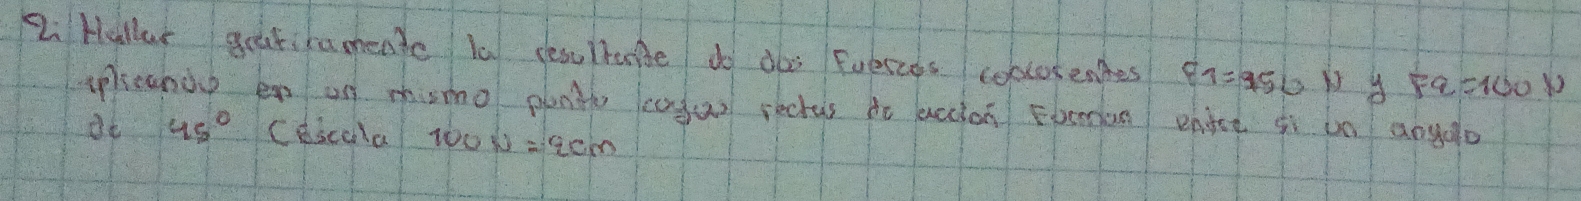 2. Hallar graficamente la resultante de dos Fuerzas concurentes F1=250 N y F2=100 N
aplicando en un mismo punto cuyas rectas de accion Forman entre si un angulo
de 45° (escala 100 N = 2cm